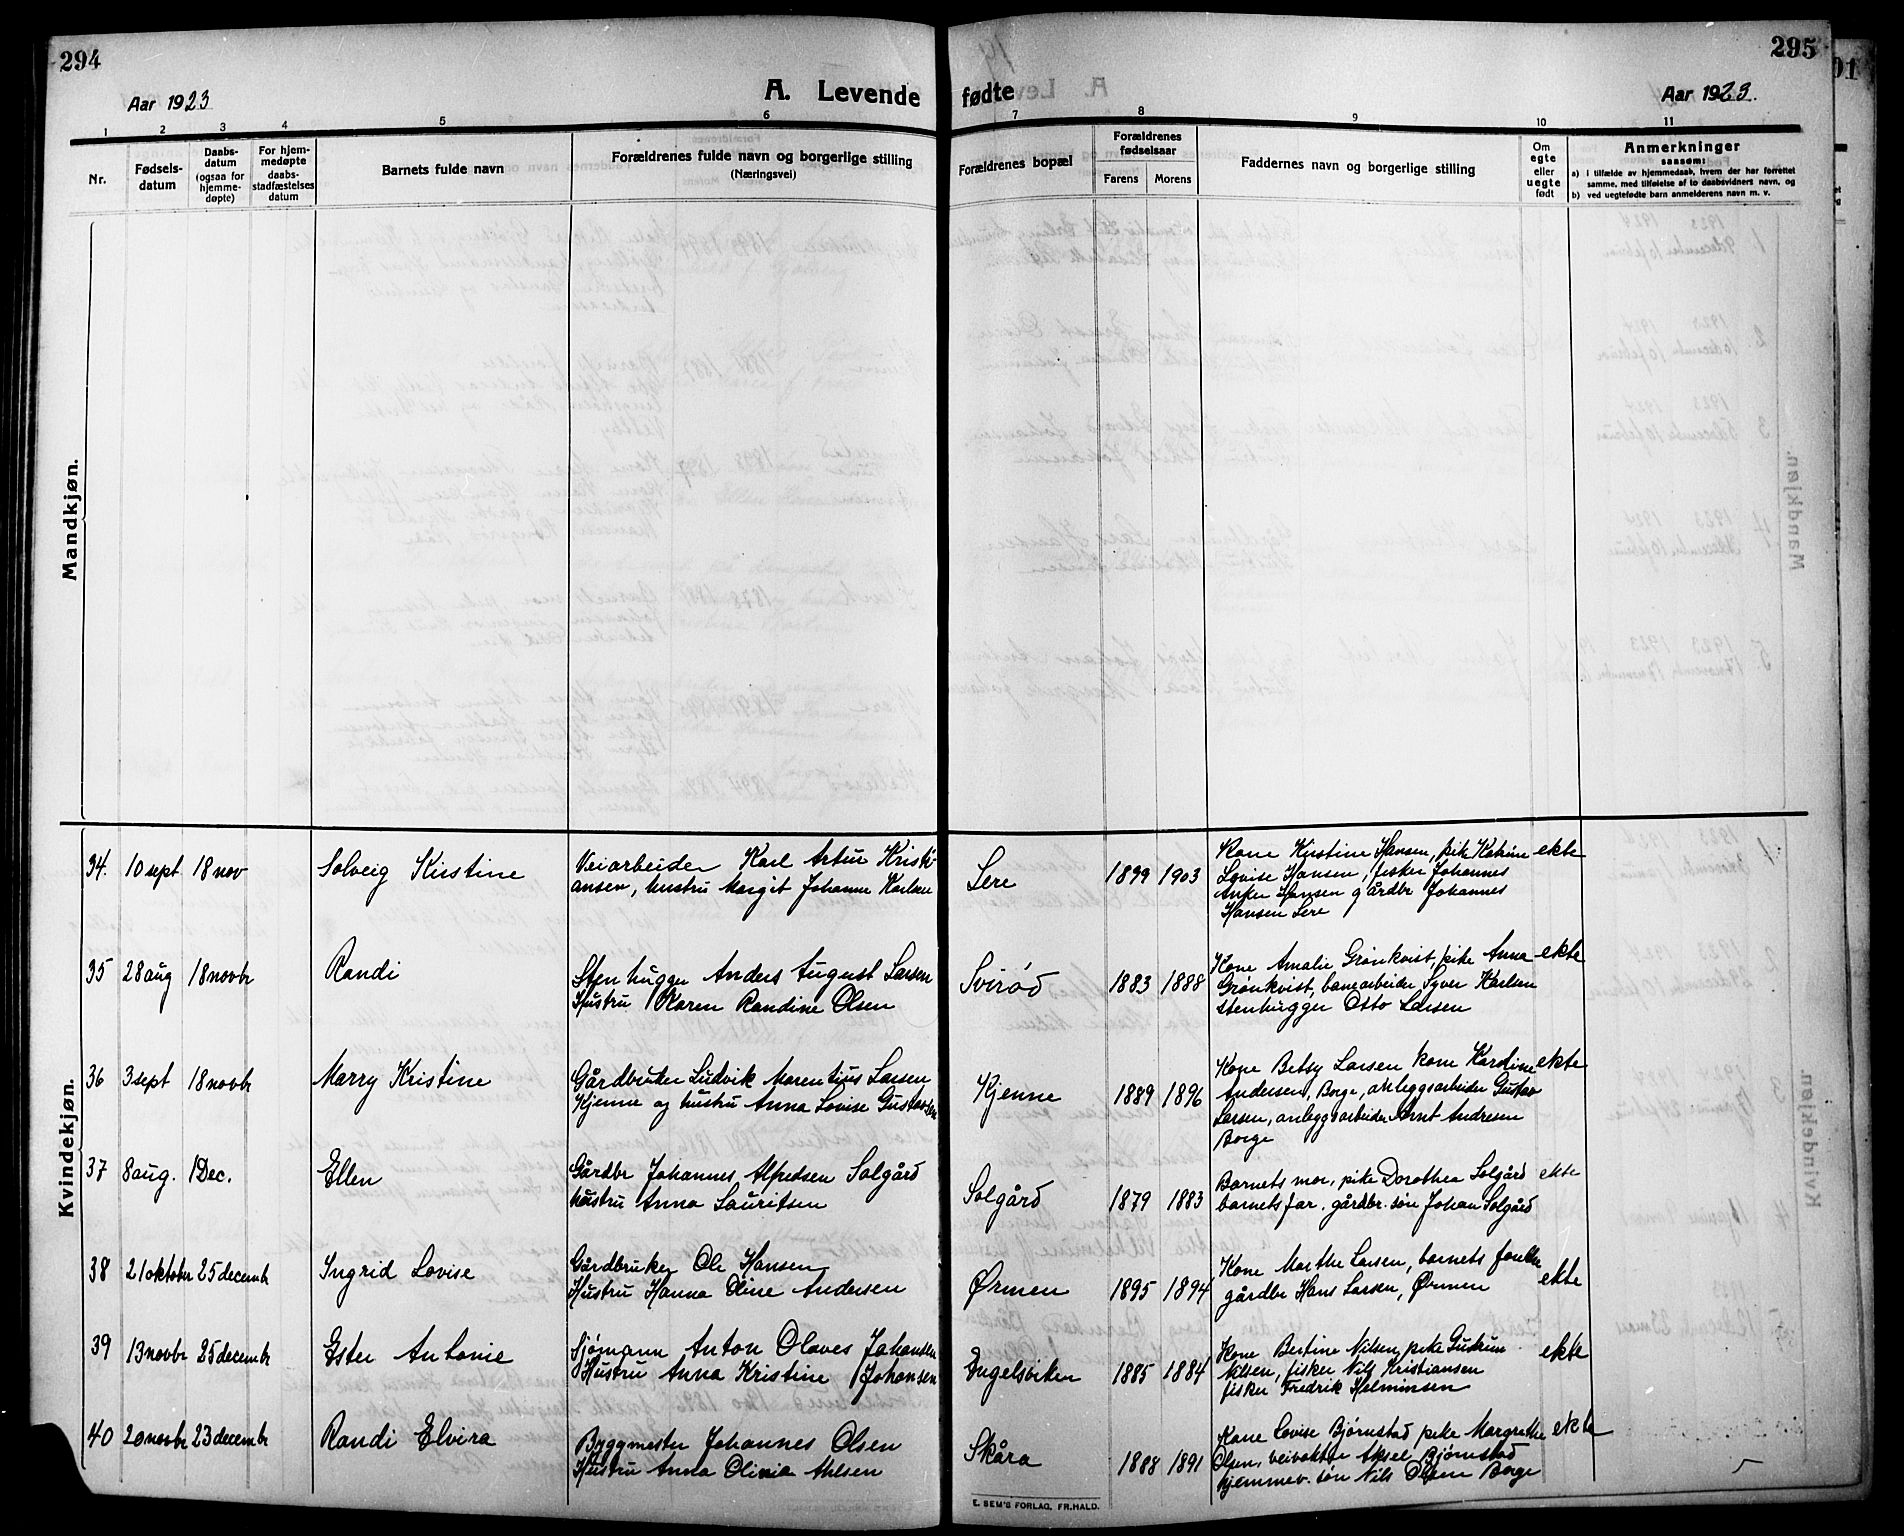 294
295
Aar 1923
A. Levende fødte
Aar 1923.
1 2 3 4 5 6 7 8 9 10 11
Nr.
Fødsels-
datum
Daabs-
datum
(ogsaa for
hjemme-
døpte)
For hjem-
medøpte
daabs-
stadfæstelses
datum
Barnets fulde navn
Forældrenes fulde navn og borgerlige stilling
(Næringsvei)
Forældrenes bopæl
Forældrenes
fødselsaar
Farens Morens
Faddernes navn og borgerlige stilling
Om
egte
eller
uegte
født
Anmerkninger
saasom:
a) i tilfælde av hjemmedaab, hvem der har forrettet
samme, med tilføielse af to daabsvidners navn, og
b) ved uegtefødte barn anmelderens navn m. v.
Mandkjøn.
Kvindekjøn.
34. 10 sept 18 nov
Solveig Kirstine
Veiarbeider Karl Artur Kristi-
ansen, hustru Margit Johanne Karlsen
Lere
1899 1903
Kone Kirstine Hansen, pike Katrine
Lovise Hansen, fisker Johannes
Anker Hansen gårdbr Johannes
Hansen Lere
ekte
35 28 aug 18 novbr
Randi
Stenhugger Anders August Larsen
Hustru Karen Randine Olsen
Svirød
1883 1888
Kone Amalie Grønkvist, pike Anna
Grønkvist, banearbeider Syver Karlsen
stenhugger Otto Larsen
ekte
36 3 sept 18 novbr
Marry Kristine
Gårdbruker Ludvik Marentius Larsen
Kjenne og hustru Anna Lovise Gustavsen
Kjenne
1889 1896
Kone Betsy Larsen kone Karoline
Andersen, Borge, anleggsarbeider Gustav
Larsen, anleggsarbeider Arnt Andresen
Borge
ekte
37 8 aug. 1 Dec.
Ellen
Gårdbr Johannes Alfredsen Solgård
hustru Anna Lauritsen
Solgård
1879 1883
Barnets mor, pike Dorothea Solgård
barnets far. gårdbr. søn Johan Solgård
ekte
38 21 oktober 25 decembr
Ingrid Lovise
Gårdbruker Ole Hansen
Hustru Hanna Oline Andersen
Ørmen
1895 1894
Kone Marthe Larsen, barnets foreldre
gårdbr Hans Larsen, Ørmen
ekte
39 13 novbr 25 decembr
Ester Antonie
Sjømann Anton Olaves Johansen
Hustru Anna Kristine Johansen
Engelsviken
1885 1884
Kone Bertine Nilsen, pike Gudrun
Nilsen, fisker Nils Kristiansen
fisker Fredrik Helminsen
ekte
40 20 novbr 23 decembr
Randi Elvira
Byggmester Johannes Olsen
Hustru Anna Olivia Ahlsen
Skåra
1888 1891
Kone Lovise Bjørnstad pike Margrethe
Olsen, veivokter Aksel Bjørnstad
hjemmev. søn Nils Olsen Borge
ekte
E. SEM'S FORLAG, FR.HALD.